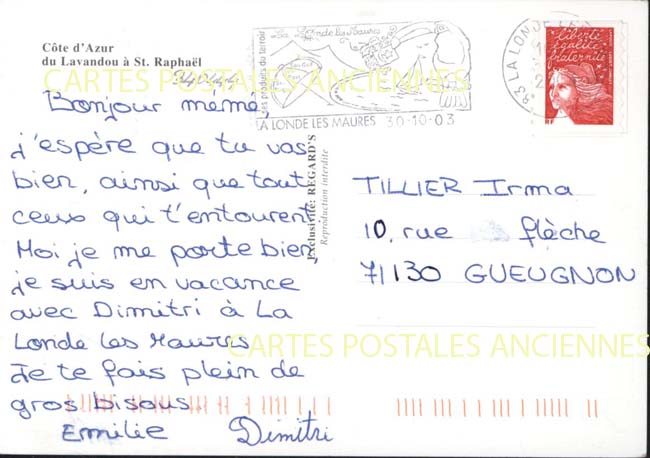 Côte d'Azur
du Lavandou à St. Raphaël
CARTES POSTALES ANCIENNES
Bonjour mémé,
j'espère que tu vas
bien, ainsi que tout
ceux qui t'entourent
Moi je me porte bien
je suis en vacance
avec Dimitri à La
Londe les Maures
Je te fais plein de
gros bisous.
Emilie Dimitri
Exclusivité: REGARD'S
Reproduction interdite
La Londe les Maures
ses produits du terroir
LA LONDE LES MAURES 30-10-03
83 LA LONDE LES
liberté
égalité
fraternité
RF
TILLIER Irma
10, rue flèche
71130 GUEUGNON
CARTES POSTALES ANCIENNES